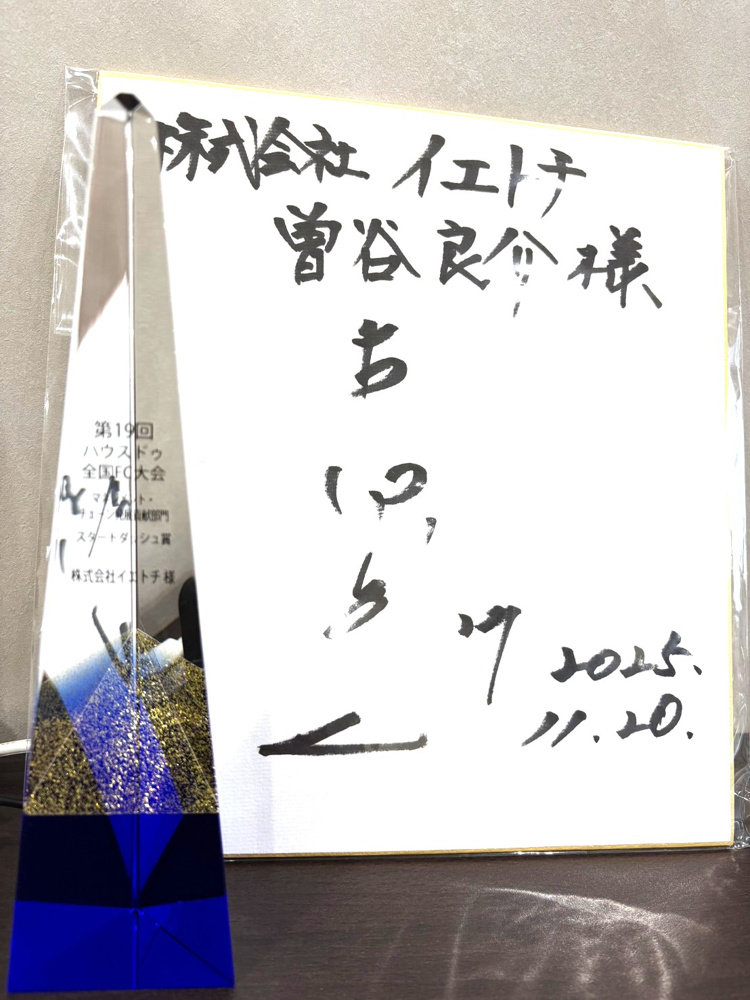 株式会社 イエトチ
曽谷良介様
2025.
11.20.
第19回
ハウスドゥ
全国FC大会
マネジメント・
チェーン発展貢献部門
スタートダッシュ賞
株式会社イエトチ 様